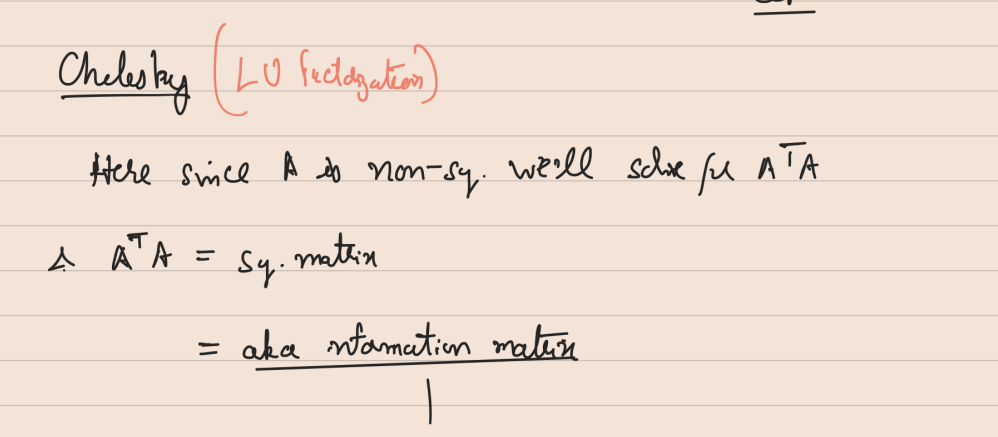 Cholesky (LU factorization)
Here since A is non-sq. we'll solve for AᵀA
& AᵀA = sq. matrix
= aka information matrix